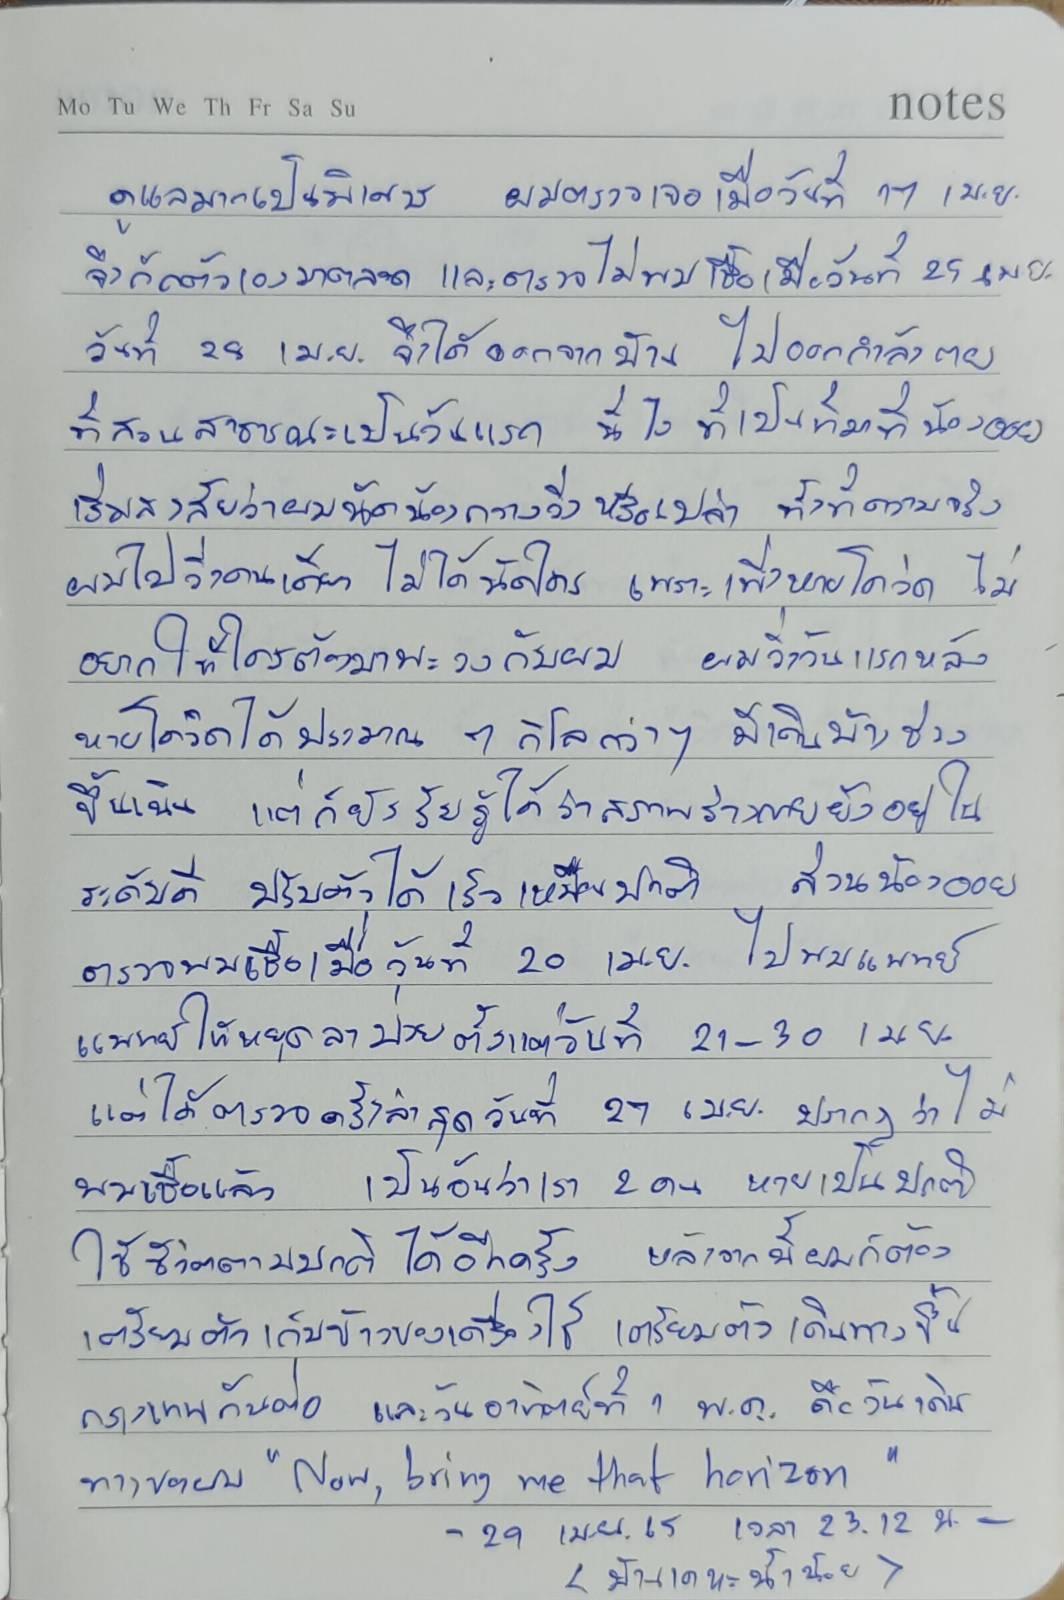 Mo Tu We Th Fr Sa Su
notes
ดูแลมากเป็นพิเศษ ผมตรวจเจอเมื่อวันที่ 17 เม.ย.
จึงกักตัวเองมาตลอด และตรวจไม่พบเชื้อเมื่อวันที่ 25 เม.ย.
วันที่ 28 เม.ย. จึงได้ออกจากบ้าน ไปออกกำลังกาย
ที่สวนสาธารณะเป็นวันแรก นี่ไง ที่เป็นที่มาที่น้องออย
เริ่มสงสัยว่าผมนัดน้องกวางวิ่งหรือเปล่า ทั้งที่ความจริง
ผมไปวิ่งคนเดียว ไม่ได้นัดใคร เพราะเพิ่งหายโควิด ไม่
อยากให้ใครต้องมาพะวงกับผม ผมวิ่งวันแรกหลัง
หายโควิดได้ประมาณ 7 กิโลกว่าๆ มีเดินบ้างช่วง
ขึ้นเนิน แต่ก็ยังรับรู้ได้ว่าสภาพร่างกายยังอยู่ใน
ระดับดี ปรับตัวได้เร็วเหมือนปกติ ส่วนน้องออย
ตรวจพบเชื้อเมื่อวันที่ 20 เม.ย. ไปพบแพทย์
แพทย์ให้หยุดลาป่วยตั้งแต่วันที่ 21-30 เม.ย.
แต่ได้ตรวจครั้งล่าสุดวันที่ 27 เม.ย. ปรากฏว่าไม่
พบเชื้อแล้ว เป็นอันว่าเรา 2 คน หายเป็นปกติ
ใช้ชีวิตตามปกติได้อีกครั้ง หลังจากนี้ผมก็ต้อง
เตรียมตัวเก็บข้าวของเครื่องใช้ เตรียมตัวเดินทางขึ้น
กรุงเทพกันต่อ และวันอาทิตย์ที่ 1 พ.ค. คือวันเดิน
ทางของผม "Now, bring me that horizon"
- 29 เม.ย. 65 เวลา 23.12 น. -
< บ้านเคหะน้ำน้อย >